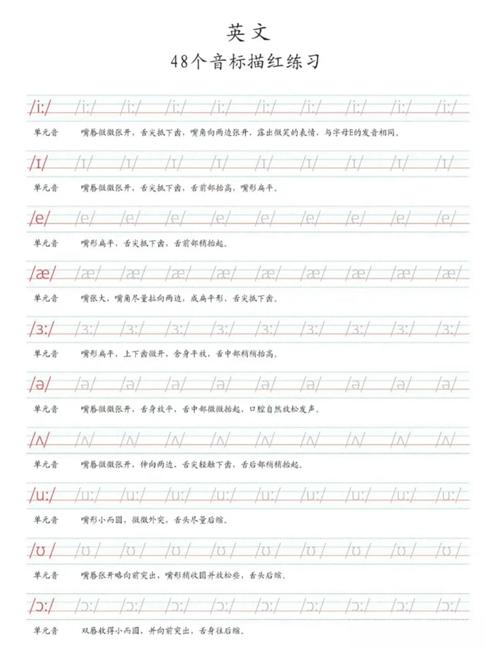 英文
48个音标描红练习
/iː/ /iː/ /iː/ /iː/ /iː/ /iː/ /iː/ /iː/ /iː/ /iː/
单元音 嘴唇微微张开，舌尖抵下齿，嘴角向两边张开，露出微笑的表情，与字母E的发音相同。
/ɪ/ /ɪ/ /ɪ/ /ɪ/ /ɪ/ /ɪ/ /ɪ/ /ɪ/ /ɪ/ /ɪ/
单元音 嘴唇微微张开，舌尖抵下齿，舌前部抬高，嘴形扁平。
/e/ /e/ /e/ /e/ /e/ /e/ /e/ /e/ /e/ /e/
单元音 嘴形扁平，舌尖抵下齿，舌前部稍抬起。
/æ/ /æ/ /æ/ /æ/ /æ/ /æ/ /æ/ /æ/ /æ/ /æ/
单元音 嘴张大，嘴角尽量拉向两边，成扁平形，舌尖抵下齿。
/ɜː/ /ɜː/ /ɜː/ /ɜː/ /ɜː/ /ɜː/ /ɜː/ /ɜː/ /ɜː/ /ɜː/
单元音 嘴形扁平，上下齿微开，舌身平放，舌中部稍稍抬高。
/ə/ /ə/ /ə/ /ə/ /ə/ /ə/ /ə/ /ə/ /ə/ /ə/
单元音 嘴唇微微张开，舌身放平，舌中部微微抬起，口腔自然放松发声。
/ʌ/ /ʌ/ /ʌ/ /ʌ/ /ʌ/ /ʌ/ /ʌ/ /ʌ/ /ʌ/ /ʌ/
单元音 嘴唇微微张开，伸向两边，舌尖轻触下齿，舌后部稍稍抬起。
/uː/ /uː/ /uː/ /uː/ /uː/ /uː/ /uː/ /uː/ /uː/ /uː/
单元音 嘴形小而圆，微微外突，舌头尽量后缩。
/ʊ/ /ʊ/ /ʊ/ /ʊ/ /ʊ/ /ʊ/ /ʊ/ /ʊ/ /ʊ/ /ʊ/
单元音 嘴唇张开略向前突出，嘴形稍收圆并放松些，舌头后缩。
/ɔː/ /ɔː/ /ɔː/ /ɔː/ /ɔː/ /ɔː/ /ɔː/ /ɔː/ /ɔː/ /ɔː/
单元音 双唇收得小而圆，并向前突出，舌身往后缩。